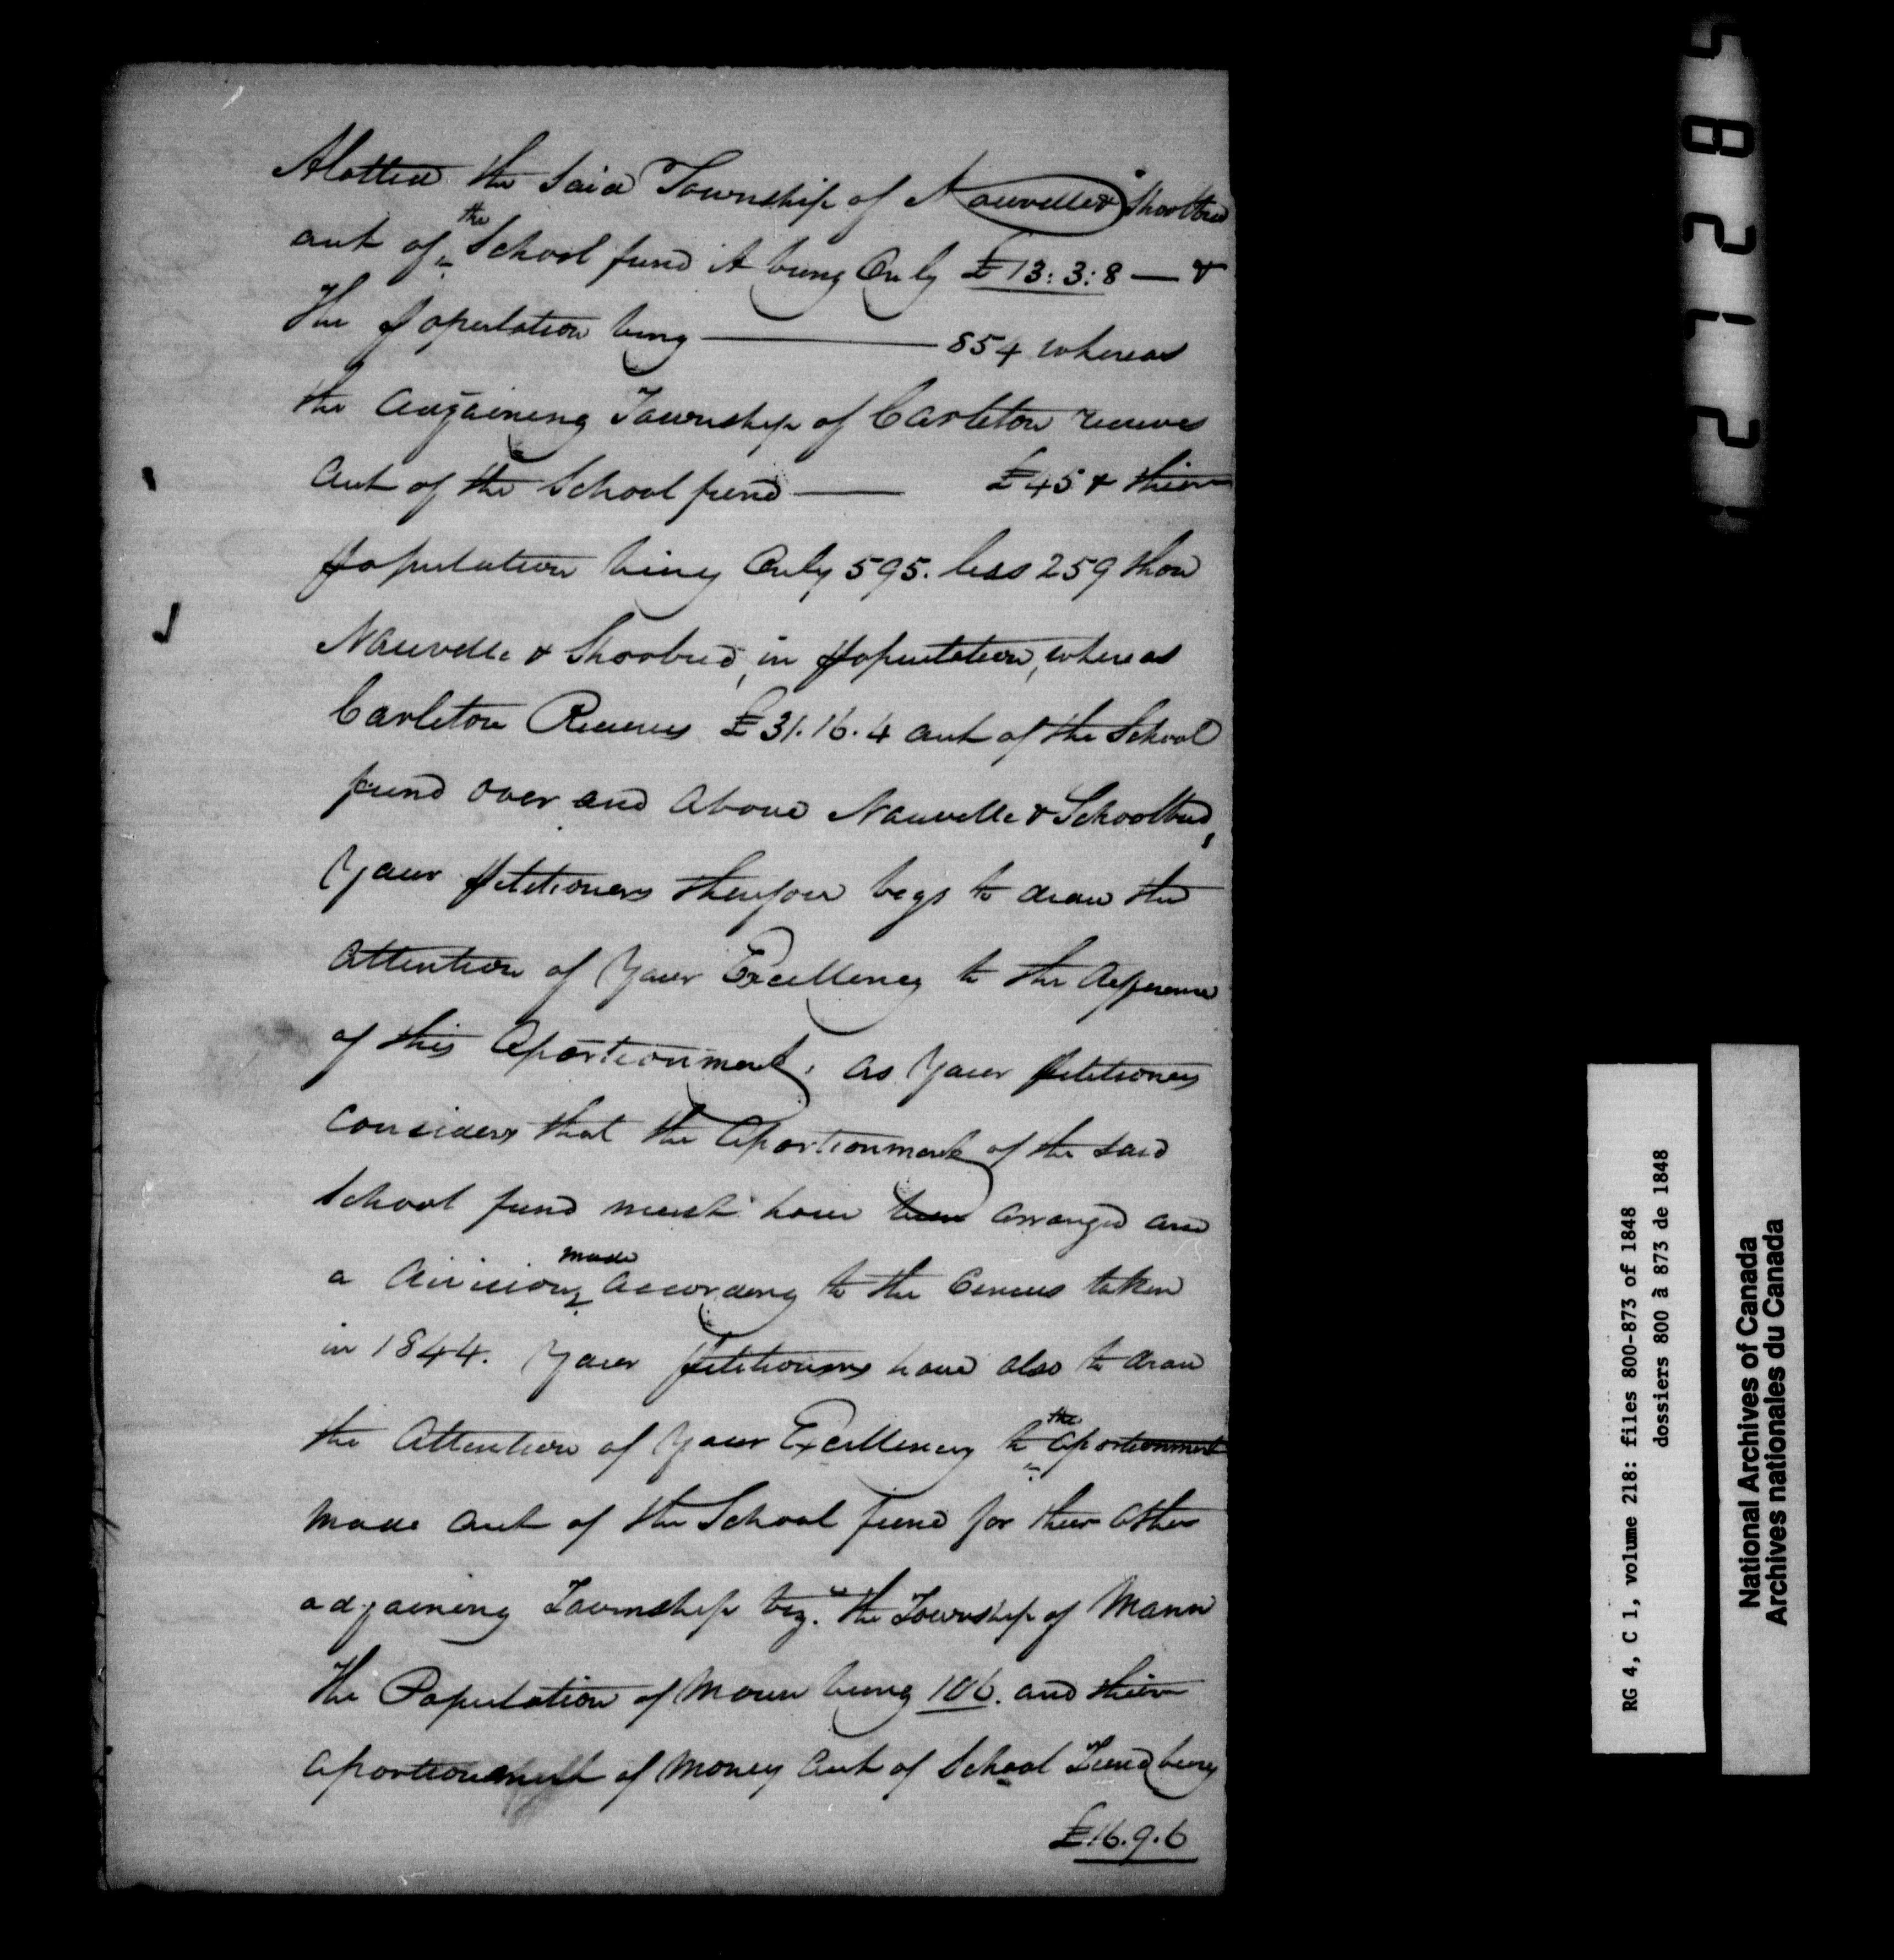 Alotted the said Township of Nouvelle & Shoolbred
out of the School fund it being Only £13:3:8 — &
The population being — 854 whereas
the adjoining Township of Carleton receives
out of the School fund — £45 & their
population being Only 595. less 259 than
Nouvelle & Shoolbred, in population, whereas
Carleton Receives £31.16.4 out of the School
fund over and above Nouvelle & Schoolbred,
Your petitioners therefore begs to draw the
attention of Your Excellency to the
of this Aportionment, as Your petitioners
considers that the Aportionment of the said
School fund must have been arranged and
a division made according to the Census taken
in 1844. Your petitioners have also to draw
the Attention of Your Excellency to the aportionment
made out of the School fund for their other
adjoining Township viz. the Township of Mann
The Population of Mann being 106. and their
aportionment of Money out of School Fund being
£16.9.6
58212
RG 4, C 1, volume 218: files 800-873 of 1848
dossiers 800 à 873 de 1848
National Archives of Canada
Archives nationales du Canada